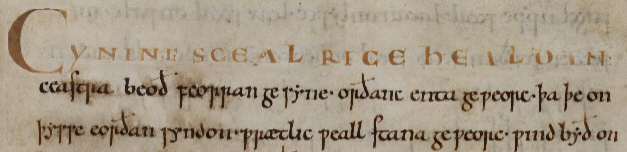 CYNING SCEAL RICE HEALDAN
ceastra beoð feorran ge syne· orðanc enta ge ƿeorc· þa þe on
þysse eorðan syndon· ƿrætlic ƿeall stana ge ƿeorc· ƿind byð on